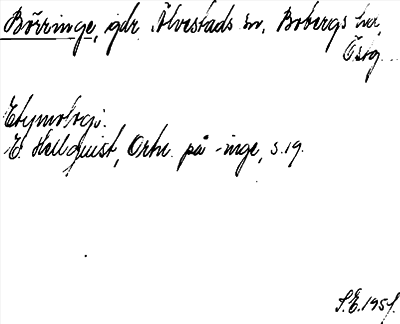 Börringe, gdr Älvestads sn, Bobergs hd,
Östg.
Etymologi.
E. Hellquist, Ortn. på -inge, s. 19.
S.E. 1951.